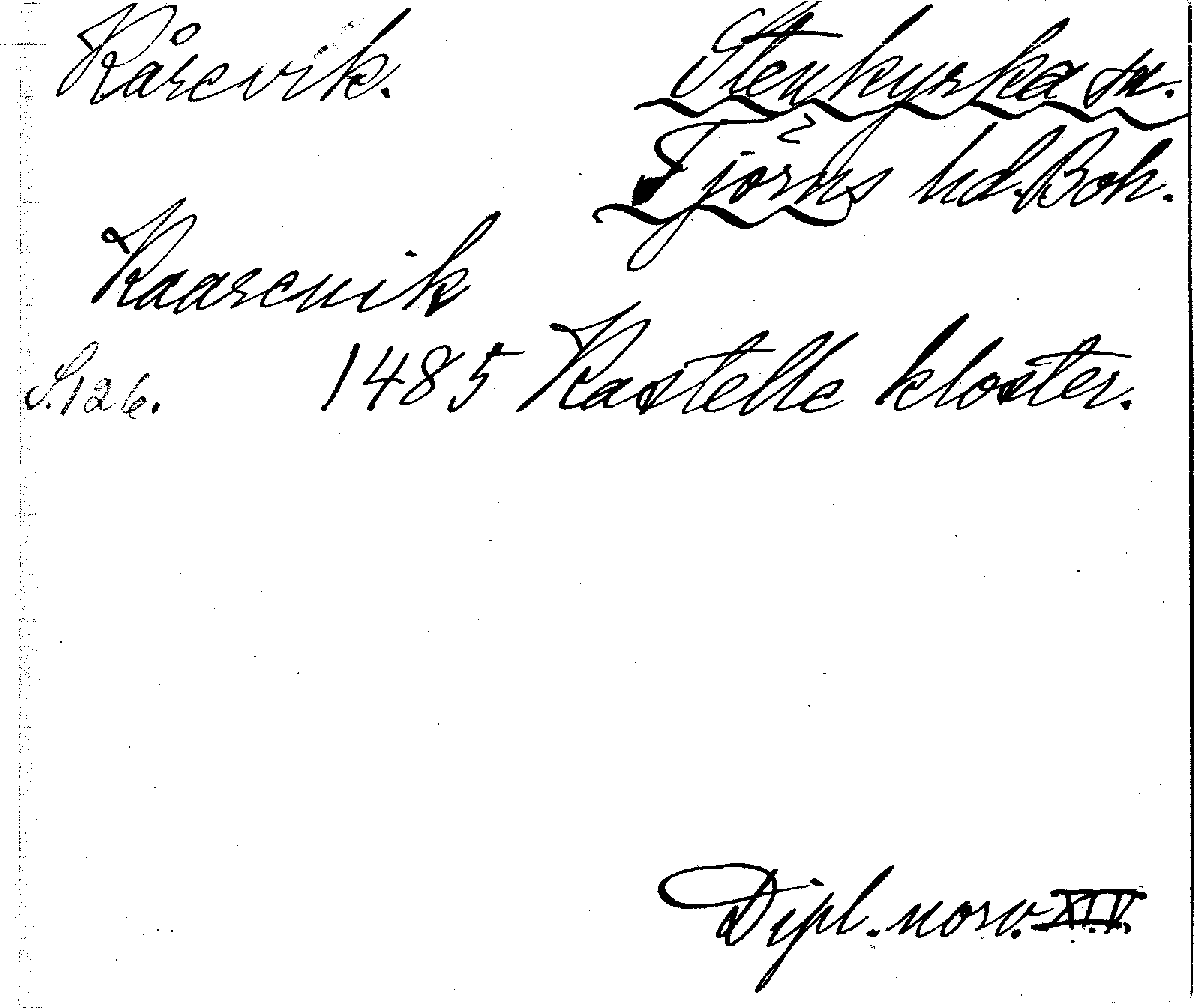 Kårevik. Stenkyrka sn.
Tjörns hd. Boh.
Kaareuik
S. 126. 1485 Kastelle kloster.
Dipl. norv. XIV.